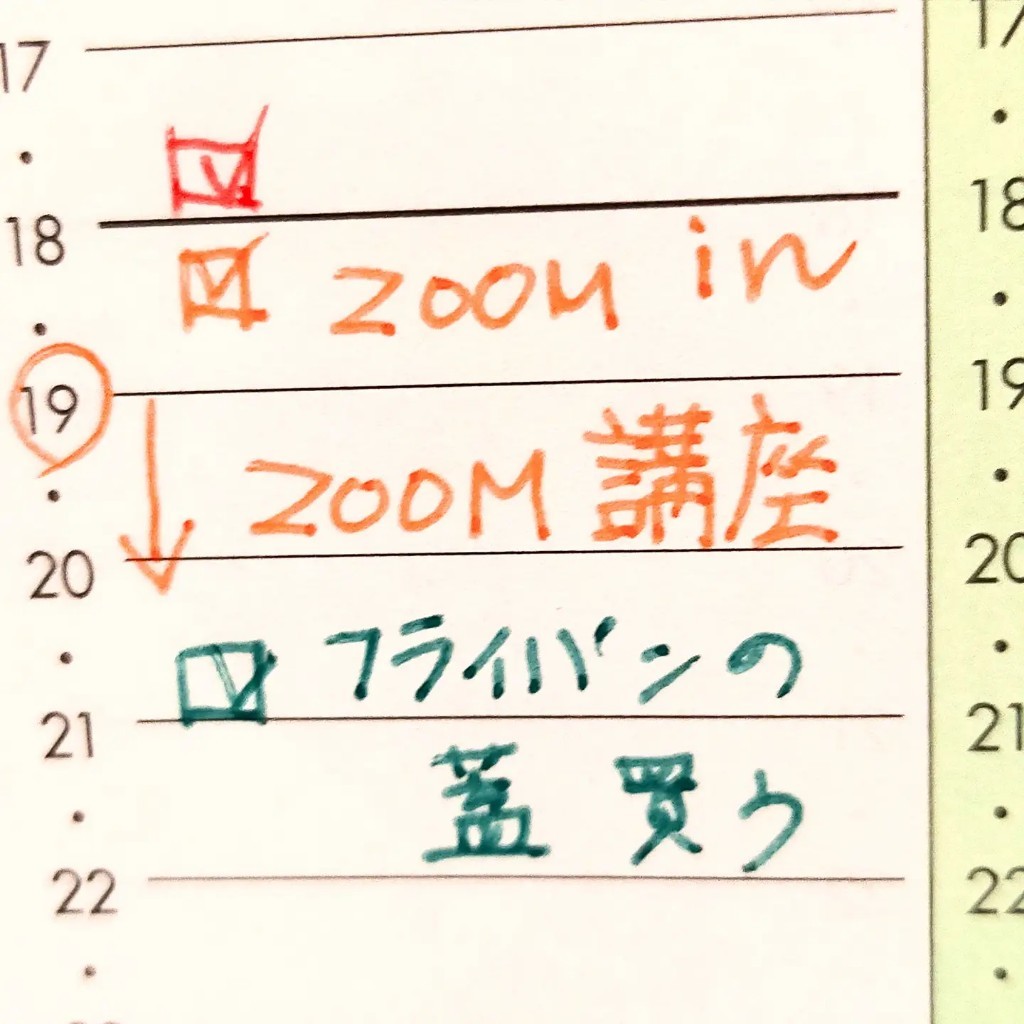 17
17
18
18
ZOOM in
19
19
ZOOM 講座
20
20
フライパンの
21
21
蓋 買う
22
22